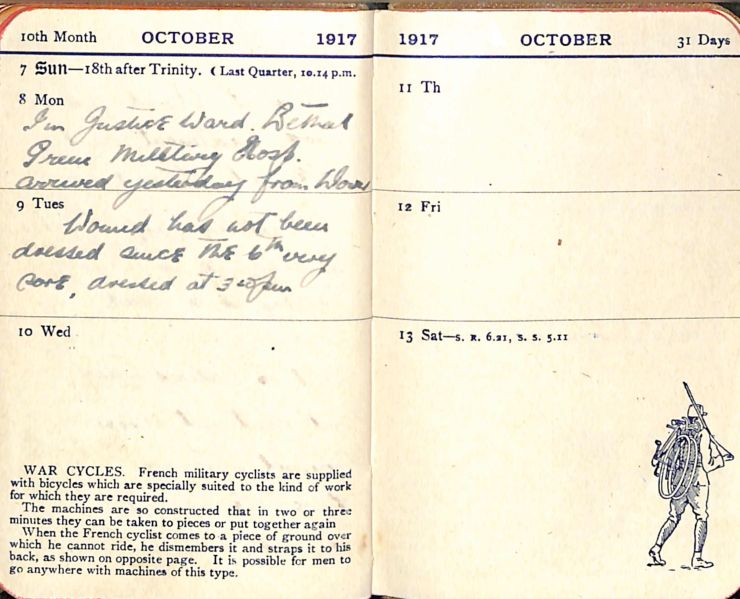 10th Month OCTOBER 1917
7 Sun—18th after Trinity. ☾ Last Quarter, 10.14 p.m.
8 Mon
I'm Justice Ward. Bethnal
Green Military Hosp.
arrived yesterday from Dover
9 Tues
Wound has not been
dressed since the 6th very
sore, dressed at 3 pm
10 Wed
WAR CYCLES. French military cyclists are supplied
with bicycles which are specially suited to the kind of work
for which they are required.
The machines are so constructed that in two or three
minutes they can be taken to pieces or put together again
When the French cyclist comes to a piece of ground over
which he cannot ride, he dismembers it and straps it to his
back, as shown on opposite page. It is possible for men to
go anywhere with machines of this type.
1917 OCTOBER 31 Days
11 Th
12 Fri
13 Sat—S. R. 6.21, S. S. 5.11